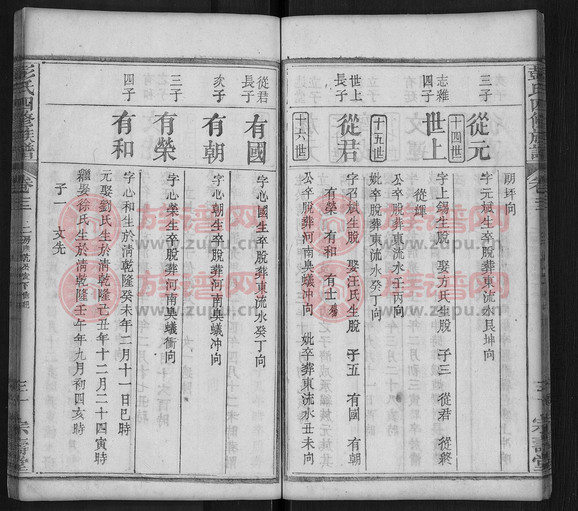 彭氏四修族譜
卷三
三十
宗壽堂
朝坪向
三子
從元
字元斌生卒脫葬東流水艮坤向
十四世
志雜
四子
世上
字上錫生脫 娶方氏生脫 子三 從君 從終
從輝
公卒脫葬東流水壬丙向
妣卒脫葬東流水癸丁向
十五世
世上
長子
從君
字召斌生脫 娶汪氏生脫 子五 有國 有朝
有榮 有和 有士
公卒脫葬河南臭蟻冲向
妣卒葬東流水丑未向
十六世
從君
長子
有國
字心國生卒脫葬東流水癸丁向
次子
有朝
字心朝生卒脫葬河南臭蟻冲向
三子
有榮
字心榮生卒脫葬河南臭蟻衝向
四子
有和
字心和生於清乾隆癸未年二月十一日巳時
元娶劉氏生於清乾隆己丑年十二月二十四寅時
繼娶徐氏生於清乾隆壬午年九月初四亥時
子一 文先
彭氏四修族譜
卷三
三十
宗壽堂
族谱网
www.zupu.cn